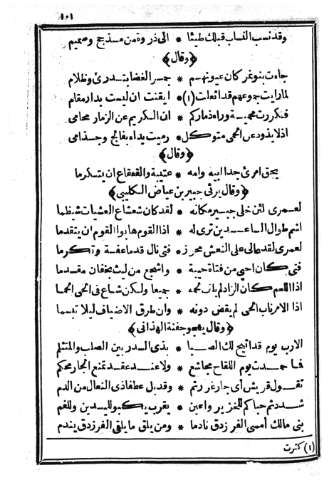 ١٠١
وقد نسب النساب قبلك طيئا * الى ذروة من مذحج وصميم
﴿وقال﴾
جاءت بنو نمر كان عيونهم * جمر الغضا وظلام
لما رأيت جموعهم قد اثعلت (١) * أيقنت ان ليست بدار مقام
فكررت محمية وراء ذماركم * ان الكريم عن الذمار محامي
اذ لا يذود عن الحمى متوكل * رميت يداه بفالج وجذامي
﴿وقال﴾
يحق امرئ جدا ابيه وامه * عتيبة والقعقاع ان يتكرما
﴿وقال يرثي جبير بن عياض الكليبي﴾
لعمرى لئن خلى جبير مكانه * لقد كان شعشاع العشيات شيظما
اشم طوال الساعدين ترى له * اذا القوم هابوا القوم ان يتقدما
لعمرى لقد عالى على النعش محرز * فتى نال قدما عفة وتكرما
فتى كان احيى من فتاة حيية * واشجع من ليث بخفان مقدما
اذا اللحم كان الزاد لم يك لحمه * جميعا ولكن شاع في الحي الحما
اذا الامر ناب الحي لم يقض دونه * وان طرق الاضياف ليلا تبسما
﴿وقال يهجو جفنة الهذاني﴾
الارب يوم قد اتيح لك الصبا * بذى السدر بين الصلب والمتثلم
فما حمدت يوم اللقاح مجاشع * ولا عند عقد تمنع الجار محكم
تقول قريش أى جار غررتم * وقد بل عطفا ذى النعال من الدم
شددتم حباكم للخزير واعين * يقرب يكبو لليدين وللفم
بنى مالك أمسى الفرزدق نادما * ومن يلق ما يلقى الفرزدق يندم
(١) كثرت